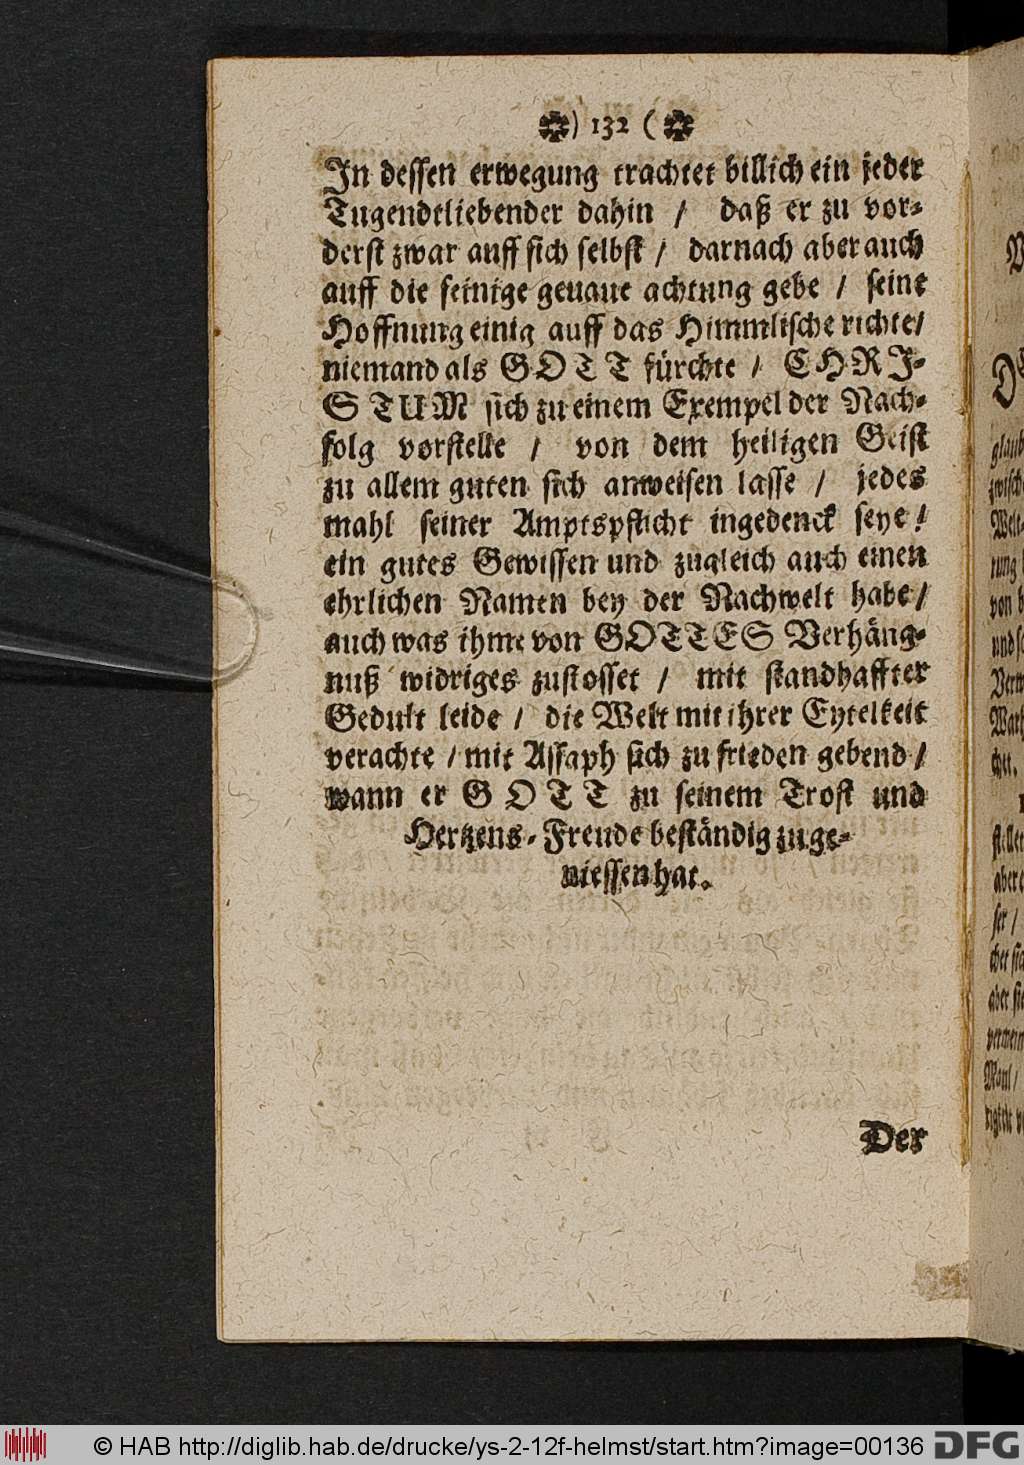 ) 132 (
In dessen erwegung trachtet billich ein jeder
Tugendtliebender dahin / daß er zu vor-
derst zwar auff sich selbst / darnach aber auch
auff die seinige genaue achtung gebe / seine
Hoffnung einig auff das Himmlische richte/
niemand als GOTT fürchte / CHRI-
STUM sich zu einem Exempel der Nach-
folg vorstelle / von dem heiligen Geist
zu allem guten sich anweisen lasse / jedes
mahl seiner Amptspflicht ingedenck seye /
ein gutes Gewissen und zugleich auch einen
ehrlichen Namen bey der Nachwelt habe/
auch was ihme von GOTTES Verhäng-
nuß widriges zustosset / mit standhaffter
Gedult leide / die Welt mit ihrer Eytelkeit
verachte / mit Assaph sich zu frieden gebend /
wann er GOTT zu seinem Trost und
Hertzens-Freude beständig zu ge-
niessen hat.
Der
© HAB http://diglib.hab.de/drucke/ys-2-12f-helmst/start.htm?image=00136
DFG